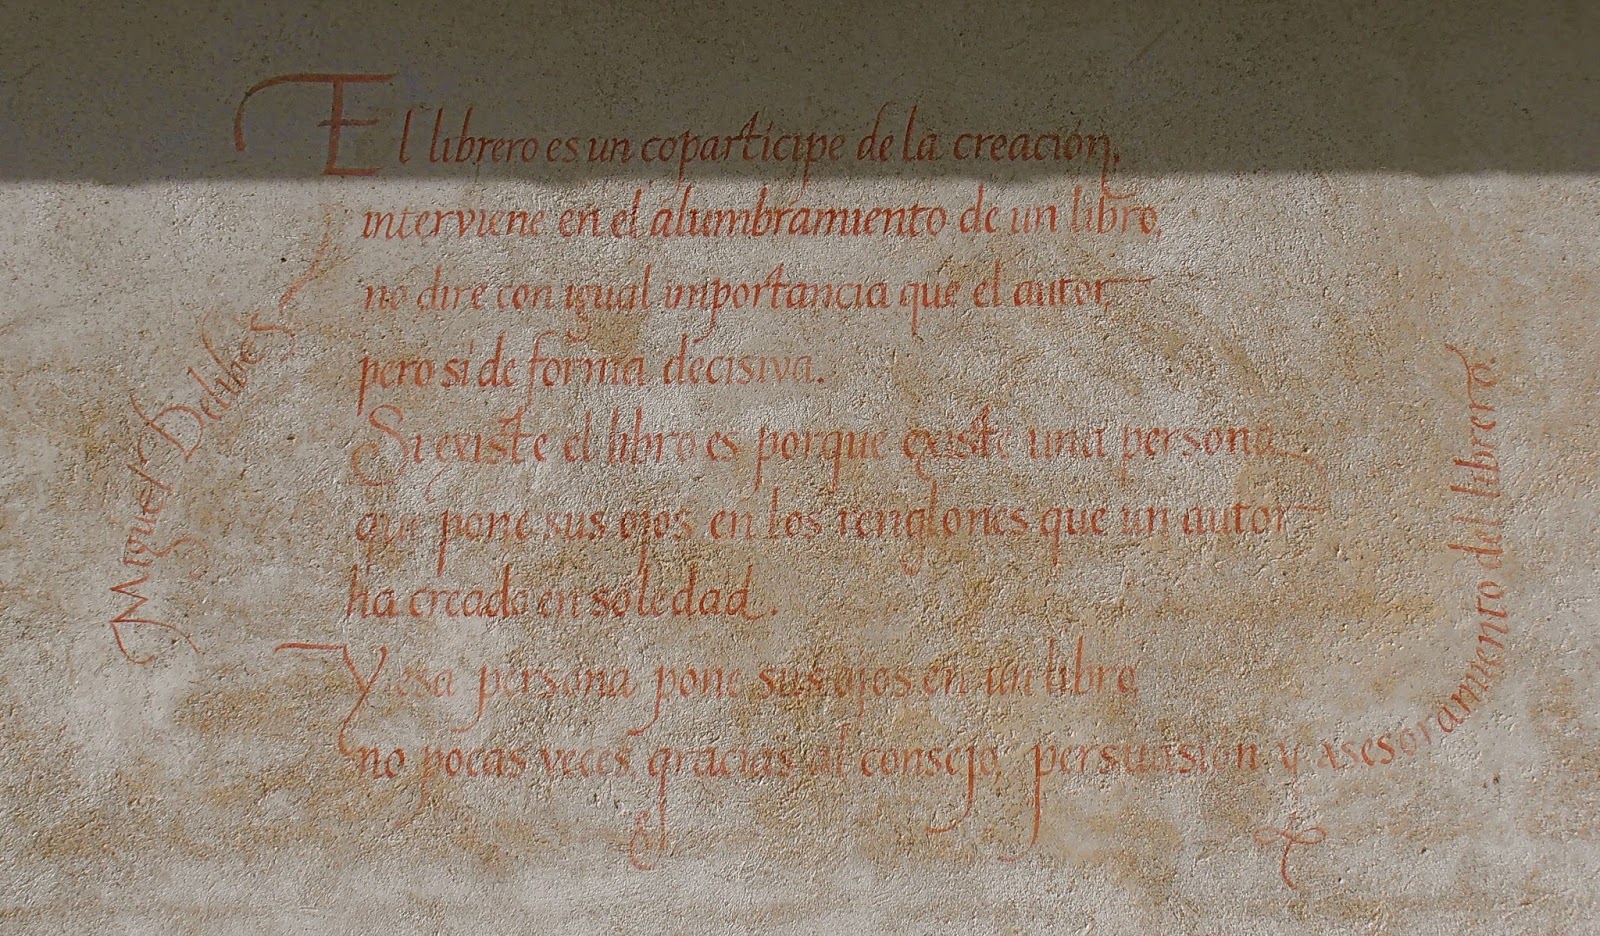 El librero es un copartícipe de la creación,
interviene en el alumbramiento de un libro,
no dire con igual importancia que el autor,
pero si de forma decisiva.
Si existe el libro es porque existe una persona
que pone sus ojos en los renglones que un autor
ha creado en soledad.
Y esa persona pone sus ojos en un libro,
no pocas veces, gracias al consejo, persuasión y asesoramiento del librero.
Miguel Delibes